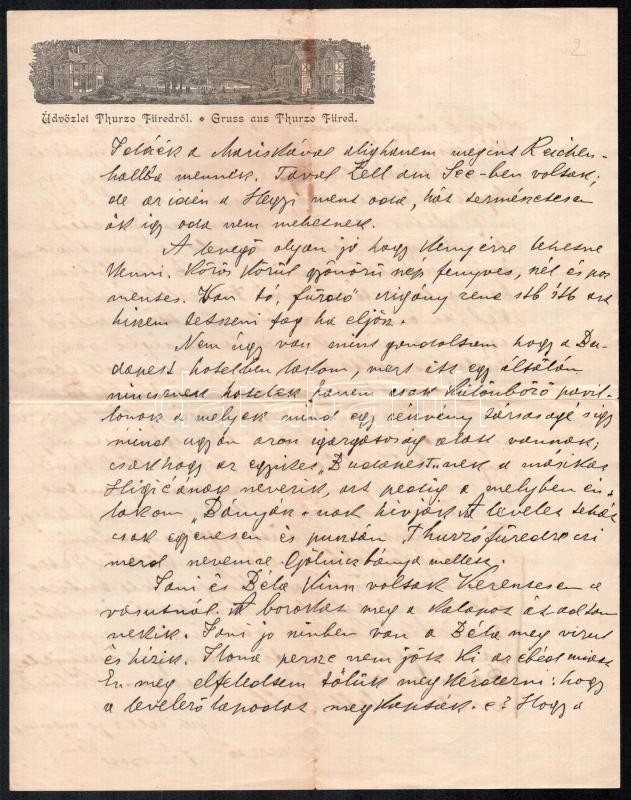 Üdvözlet Thurzo Füredről. • Gruss aus Thurzo Füred.
2
a Mariskával alighanem megint Reichen-
hallba mennek. Tavaly Zell am See-ben voltak,
de az idén a Hegyi ment oda, hát természetesen
ők így oda nem mehetnek.
A levegő olyan jó hogy kenyérre lehetne
kenni. Körös körül gyönyörű nép fenyves, szél és por
mentes. Van tó, fürdő cigány zene stb stb azt
hiszem tetszeni fog ha eljön.
Nem úgy van mint gondoltam hogy a Bu-
dapest hotelben lakom, mert itt egy általán
nincsenek hotelek hanem csak különböző pavil-
lonok a melyek mind egy részvény társaságé s így
mind ugyan azon igazgatóság alatt vannak,
csakhogy az egyiket „Budapest"nek a másikat
Higiéának nevezik, azt pedig a melyben én
lakom „Bányák"-nak hívják. A levelet tehát
csak egyenesen és pusztán Thurzófüredre
nevemre Gölniczbánya mellett.
és Béla kinn voltak Kerentsen a
vasutnál. A boroskát meg a kalapot át adtam
nekik. jó színben van a Béla meg virul
és hízik. Ilona persze nem jött ki az ebéd miatt
Én meg elfeledtem tőlük megkérdezni: hogy
a levelezőlapodat megkapták-e? Hogy a